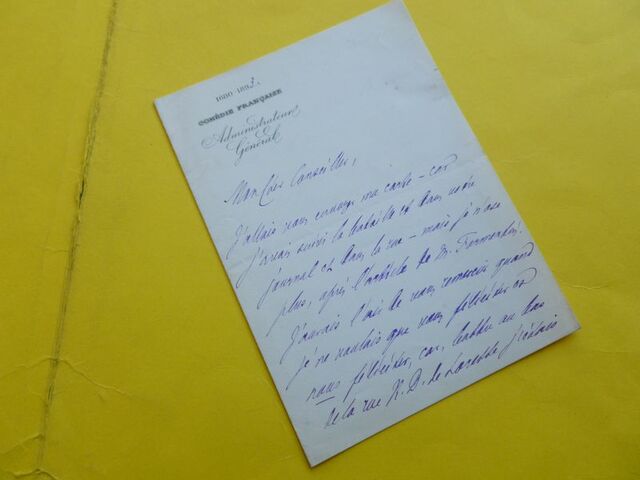 1680-1893.
COMÉDIE FRANÇAISE
Administrateur
Général
Mon cher Conseiller,
J'allais vous envoyer ma carte - car
j'avais suivi la bataille et dans votre
journal et dans la rue - mais je n'ose
plus, après l'article de M. Formentin.
J'aurais l'air de vous remercier quand
je ne voulais que vous féliciter et
nous féliciter, car, battu au bas
de la rue N. D. de Lorette j'étais